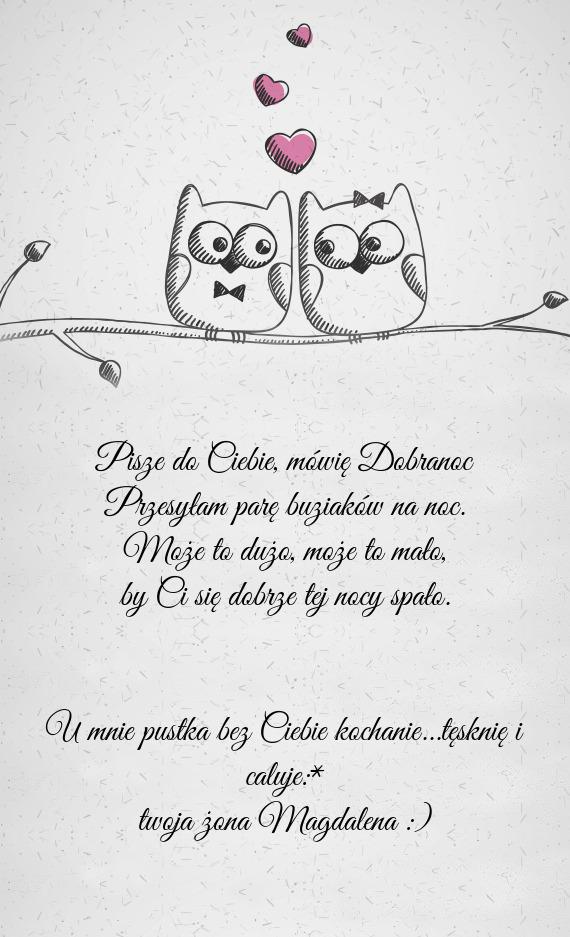 Pisze do Ciebie, mówię Dobranoc
Przesyłam parę buziaków na noc.
Może to dużo, może to mało,
by Ci się dobrze tej nocy spało.
U mnie pustka bez Ciebie kochanie...tęsknię i
caluje:*
twoja żona Magdalena :)